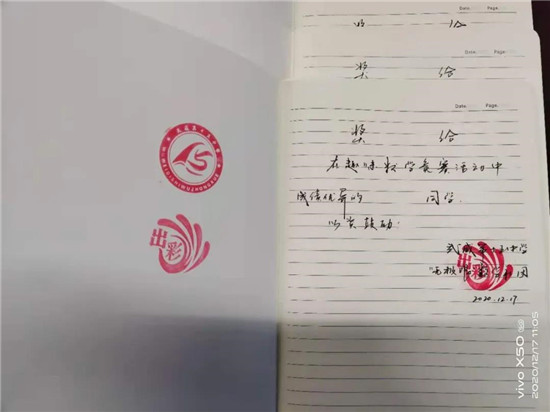 Date: Page:
奖 给
Date: Page:
奖 给
Date: Page:
奖 给
在趣味数学竞赛活动中
成绩优异的 同学.
以资鼓励!
2020.12.17
出彩
出彩
vivo X50
2020/12/17 11:05